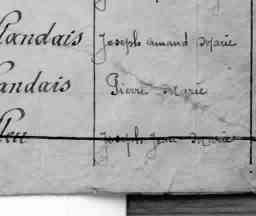 landais Joseph amand Marie
andais Pierre Marie
Joseph Jean Marie